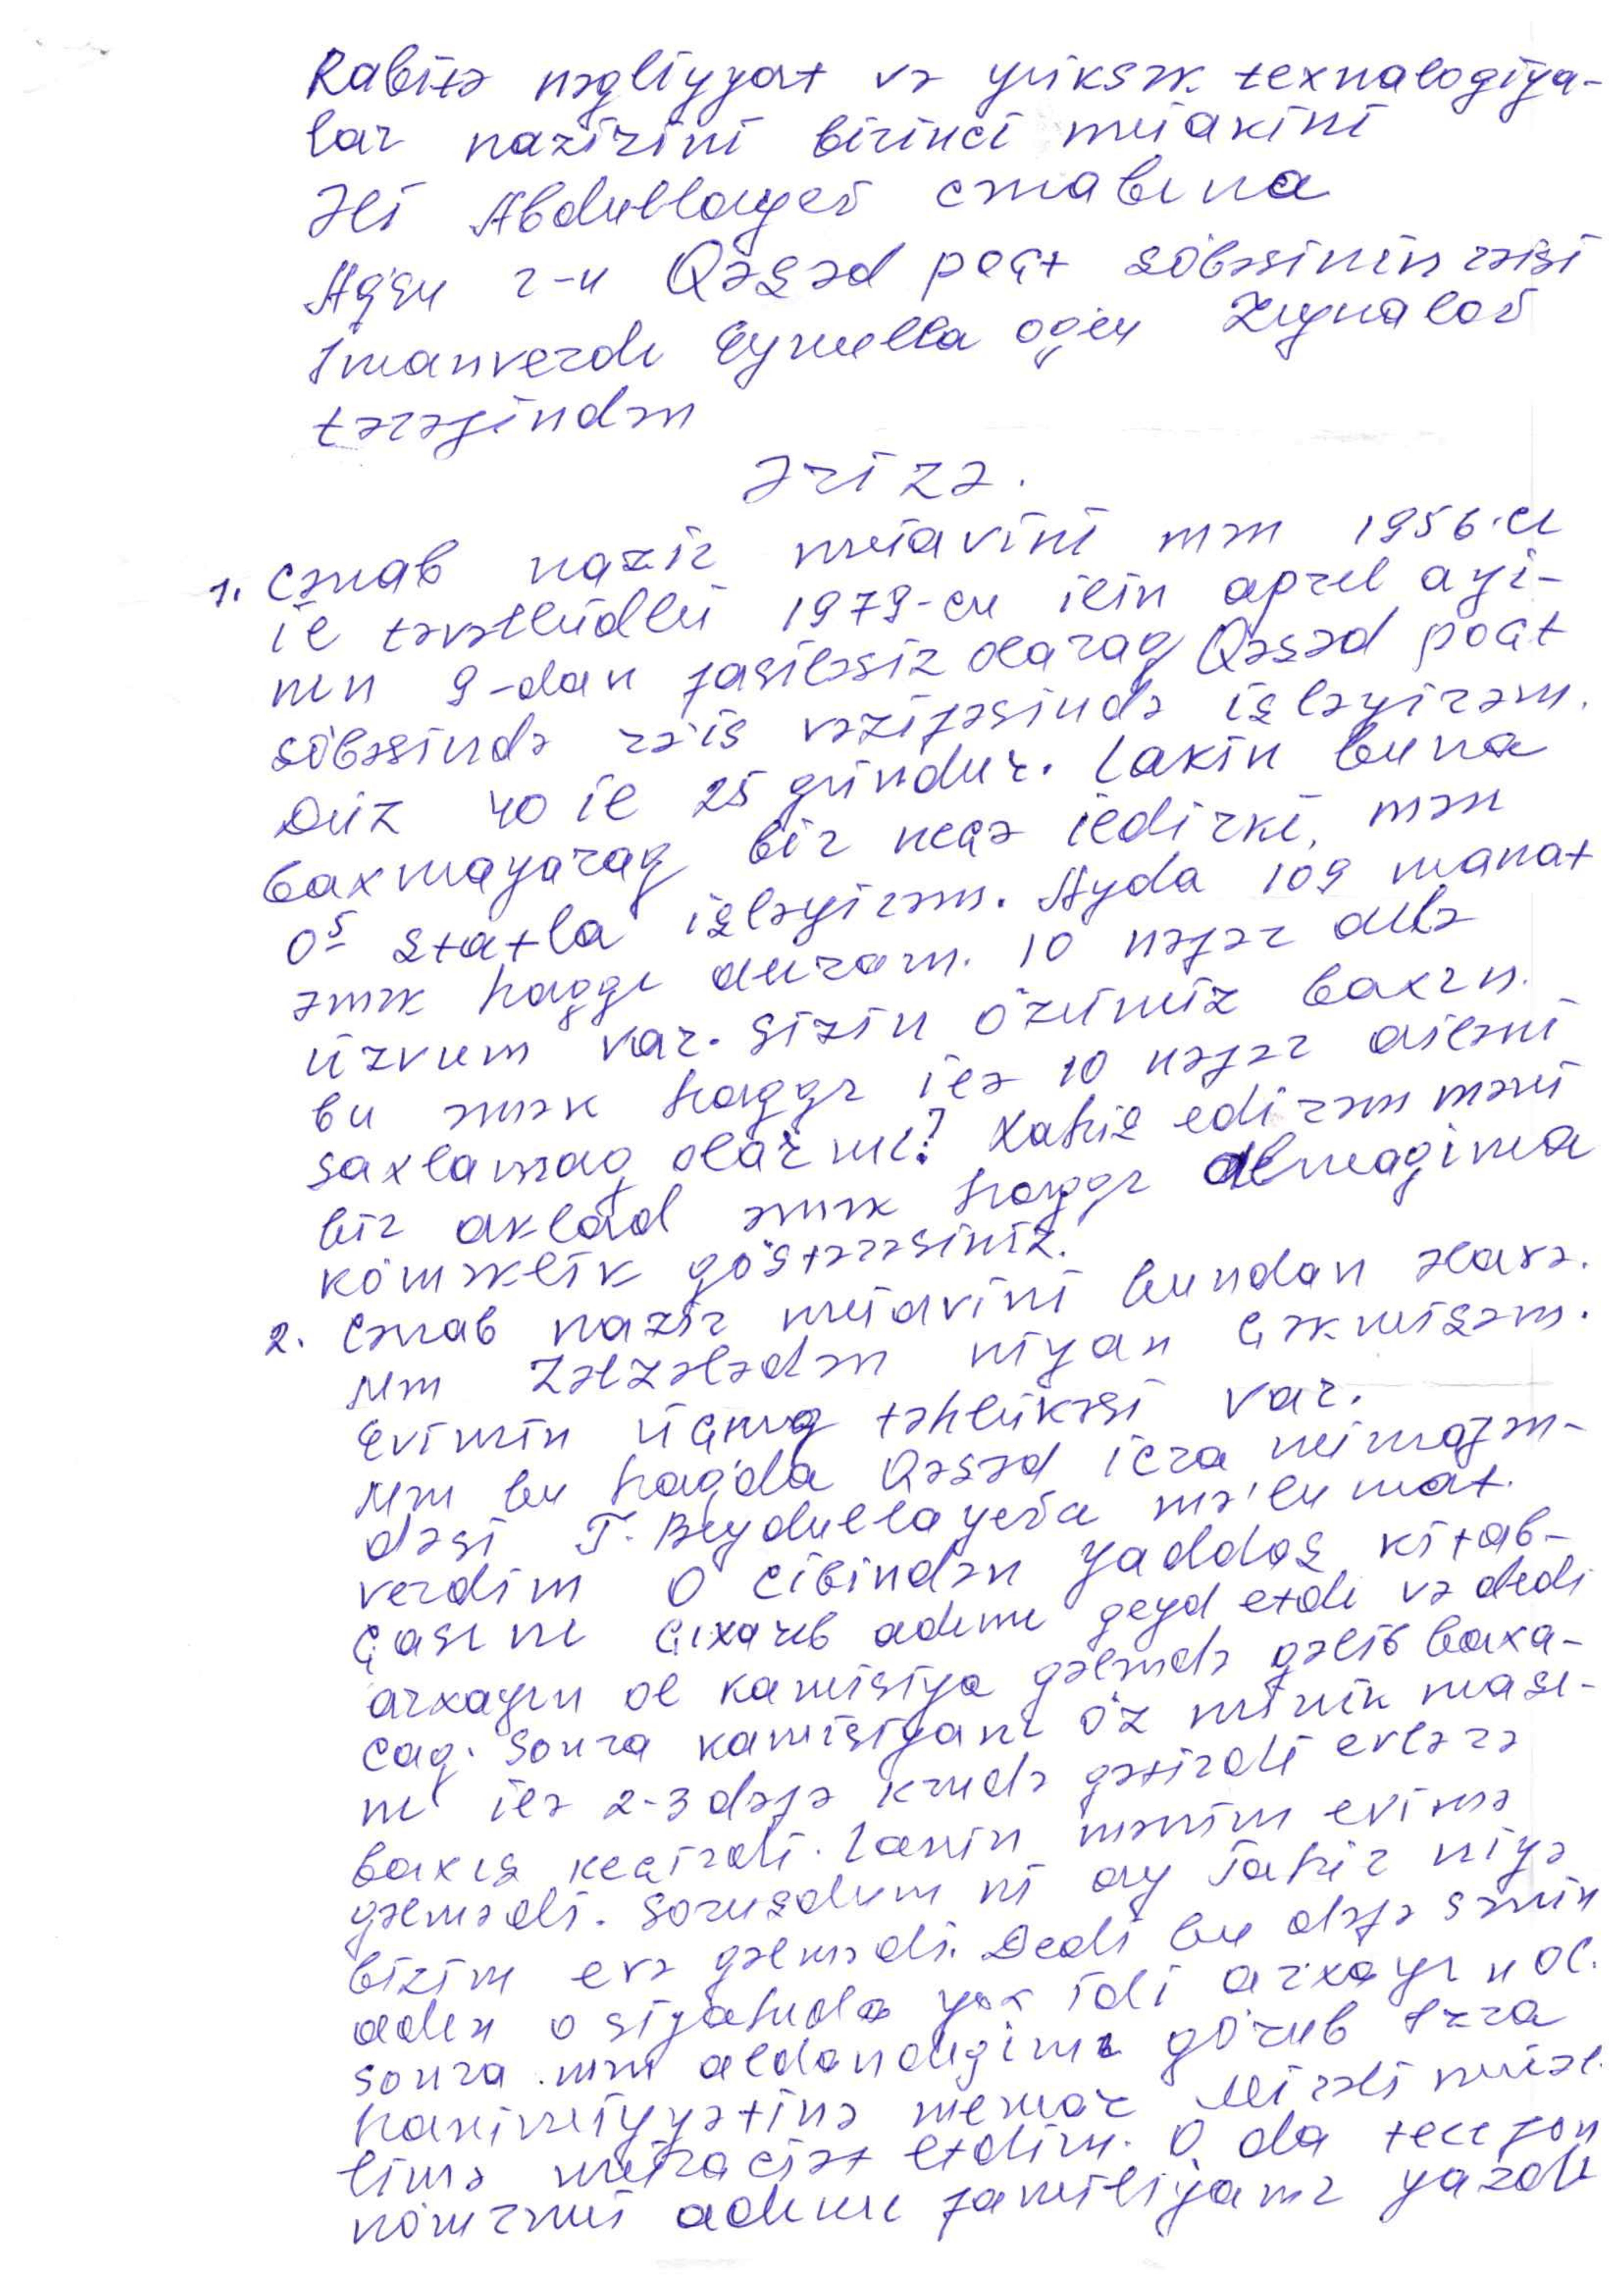 Rabitə nəqliyyat və yüksək texnalogiya-
lar nazirini birinci müavini
Əli Abdullayev cənabına
Ağsu r-u Qəşəd poçt şöbəsinin rəisi
İmanverdi Eynulla oğlu Zeynalov
tərəfindən
Ərizə.
1. Cənab nazir müavini mən 1956-cı
il təvəllüdlü 1979-cu ilin aprel ayı-
nın 9-dan fasiləsiz olaraq Qəşəd poçt
şöbəsində rə'is vəzifəsində işləyirəm.
Düz 40 il 25 gündür. Lakin buna
baxmayaraq bir neçə ildirki, mən
0⁵ ştatla işləyirəm. Ayda 109 manat
əmək haqqı alıram. 10 nəfər ailə
üzvum var. Sizin özünüz baxın.
bu əmək haqqı ilə 10 nəfər ailəni
saxlamaq olarmı? Xahiş edirəm məni
bir aklad əmək haqqı almağıma
köməklik göstərəsiniz.
2. Cənab nazir müavini bundan əlavə.
Mən Zəlzələdən ziyan çəkmişəm.
Evimin üçmaq təhlükəsi var.
Mən bu haqda Qəşəd icra nümayən-
dəsi T. Beydullayevə mə'lumat
verdim O cibindən yaddaş kitab-
çasını çıxarıb adımı qeyd etdi və dedi
arxayın ol kamisiya gələndə gəlib baxa-
caq. Sonra kamisiyanı öz minik maşı-
nı ilə 2-3 dəfə kəndə gətirdi evlərə
baxış keçirdi. Lakin mənim evimə
gəlmədi. Soruşdum ki ay Tahir niyə
bizim evə gəlmədi. Dedi bu dəfə sənin
adın o siyahıda yox idi arxayın ol.
Sonra mən aldandığımı görüb İcra
hakimiyyətinə memar Mirəli müəl-
limə müraciət etdim. O da telefon
nömrəmi adımı familiyamı yazdı